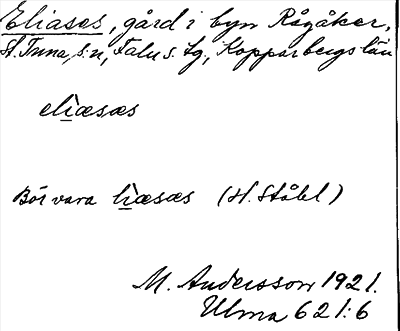 Eliases, gård i byn Rågåker,
St. Tuna, s:n, Falu s. lg., Kopparbergs län
eliæsæs
Bör vara liæsæs (H. Ståhl)
M. Andersson 1921.
Ulma 621:6